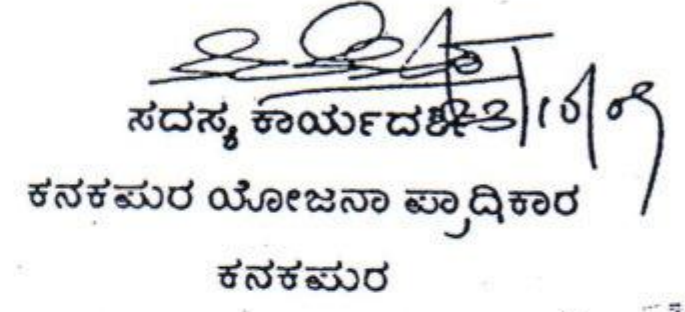 ಸದಸ್ಯ ಕಾರ್ಯದರ್ಶಿ 23/10/09
ಕನಕಪುರ ಯೋಜನಾ ಪ್ರಾಧಿಕಾರ
ಕನಕಪುರ